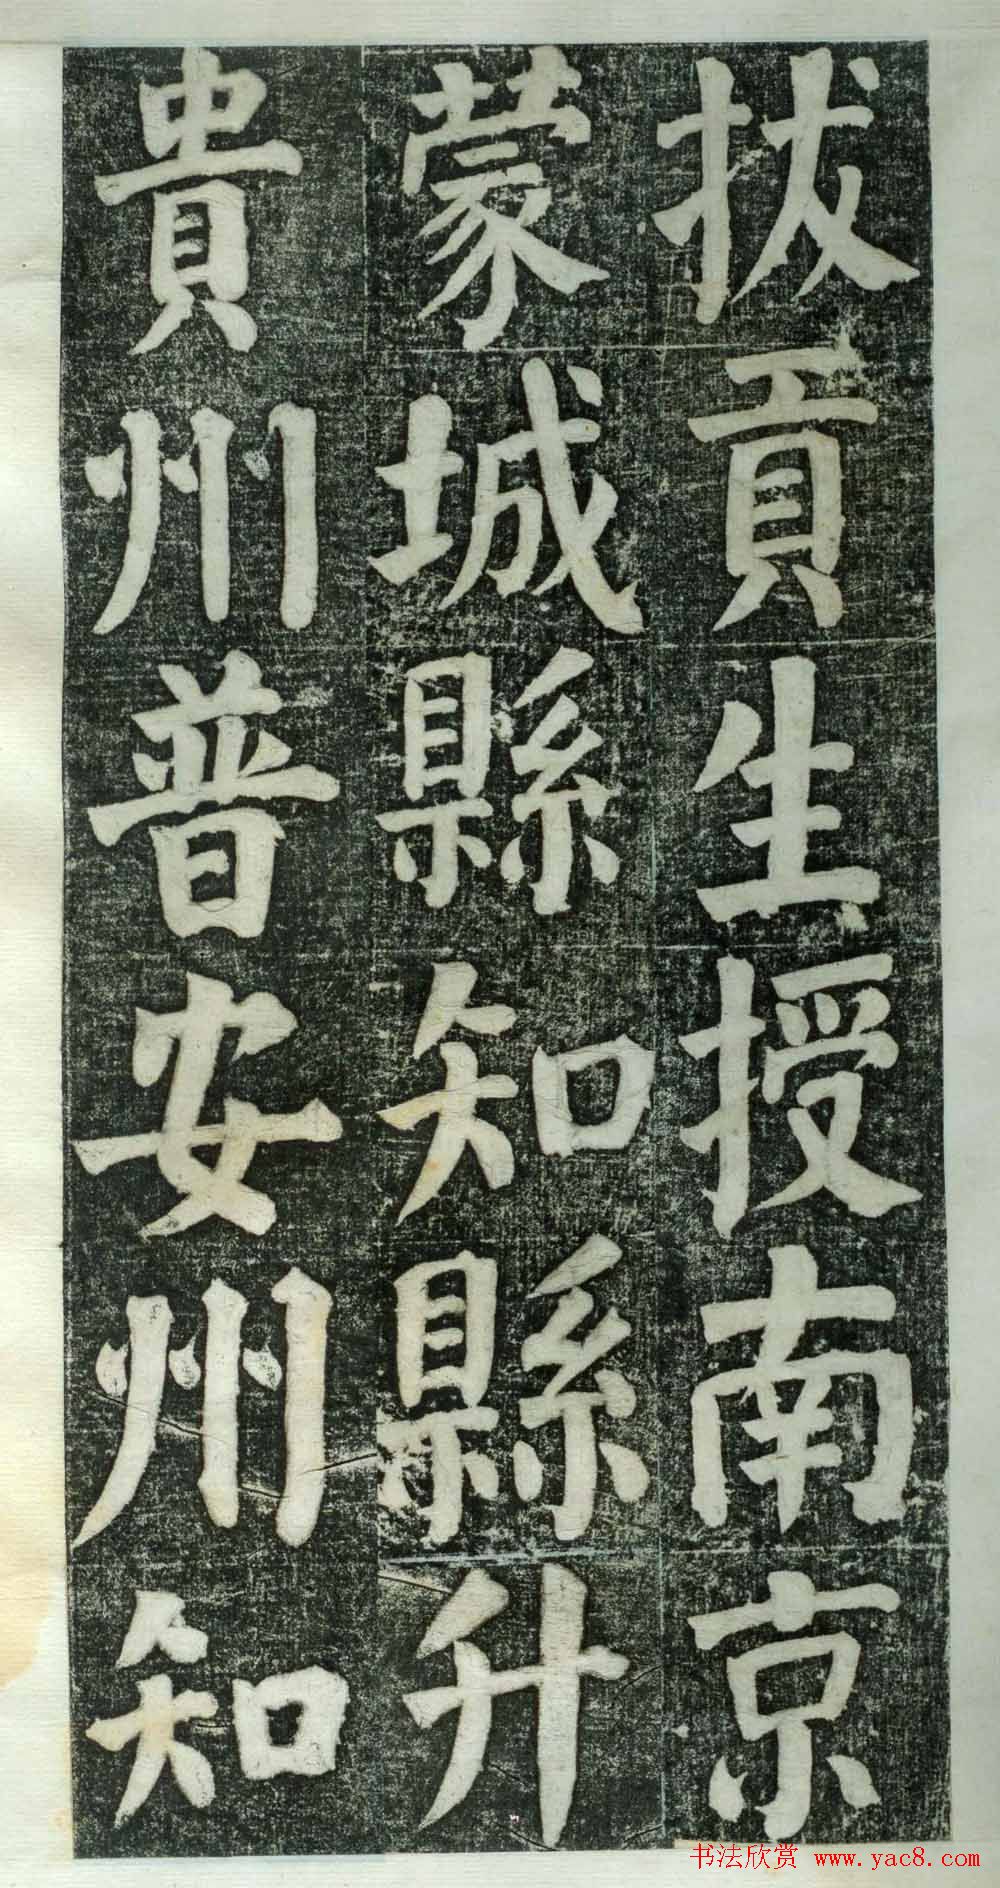 拔貢生授南京
蒙城縣知縣升
貴州普安州知
书法欣赏 www.yac8.com